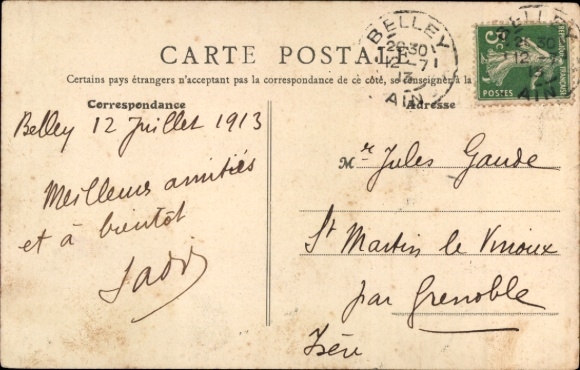 CARTE POSTALE
Certains pays étrangers n'acceptant pas la correspondance de ce côté, se renseigner à la
Correspondance
Belley 12 Juillet 1913
Meilleures amitiés
et à bientôt
Adresse
Mr Jules Gaude
St Martin le Vinoux
par Grenoble
Isère
BELLEY
20 30
12 - 7
13
AIN
5c
POSTES
BELLEY
12
13
AIN